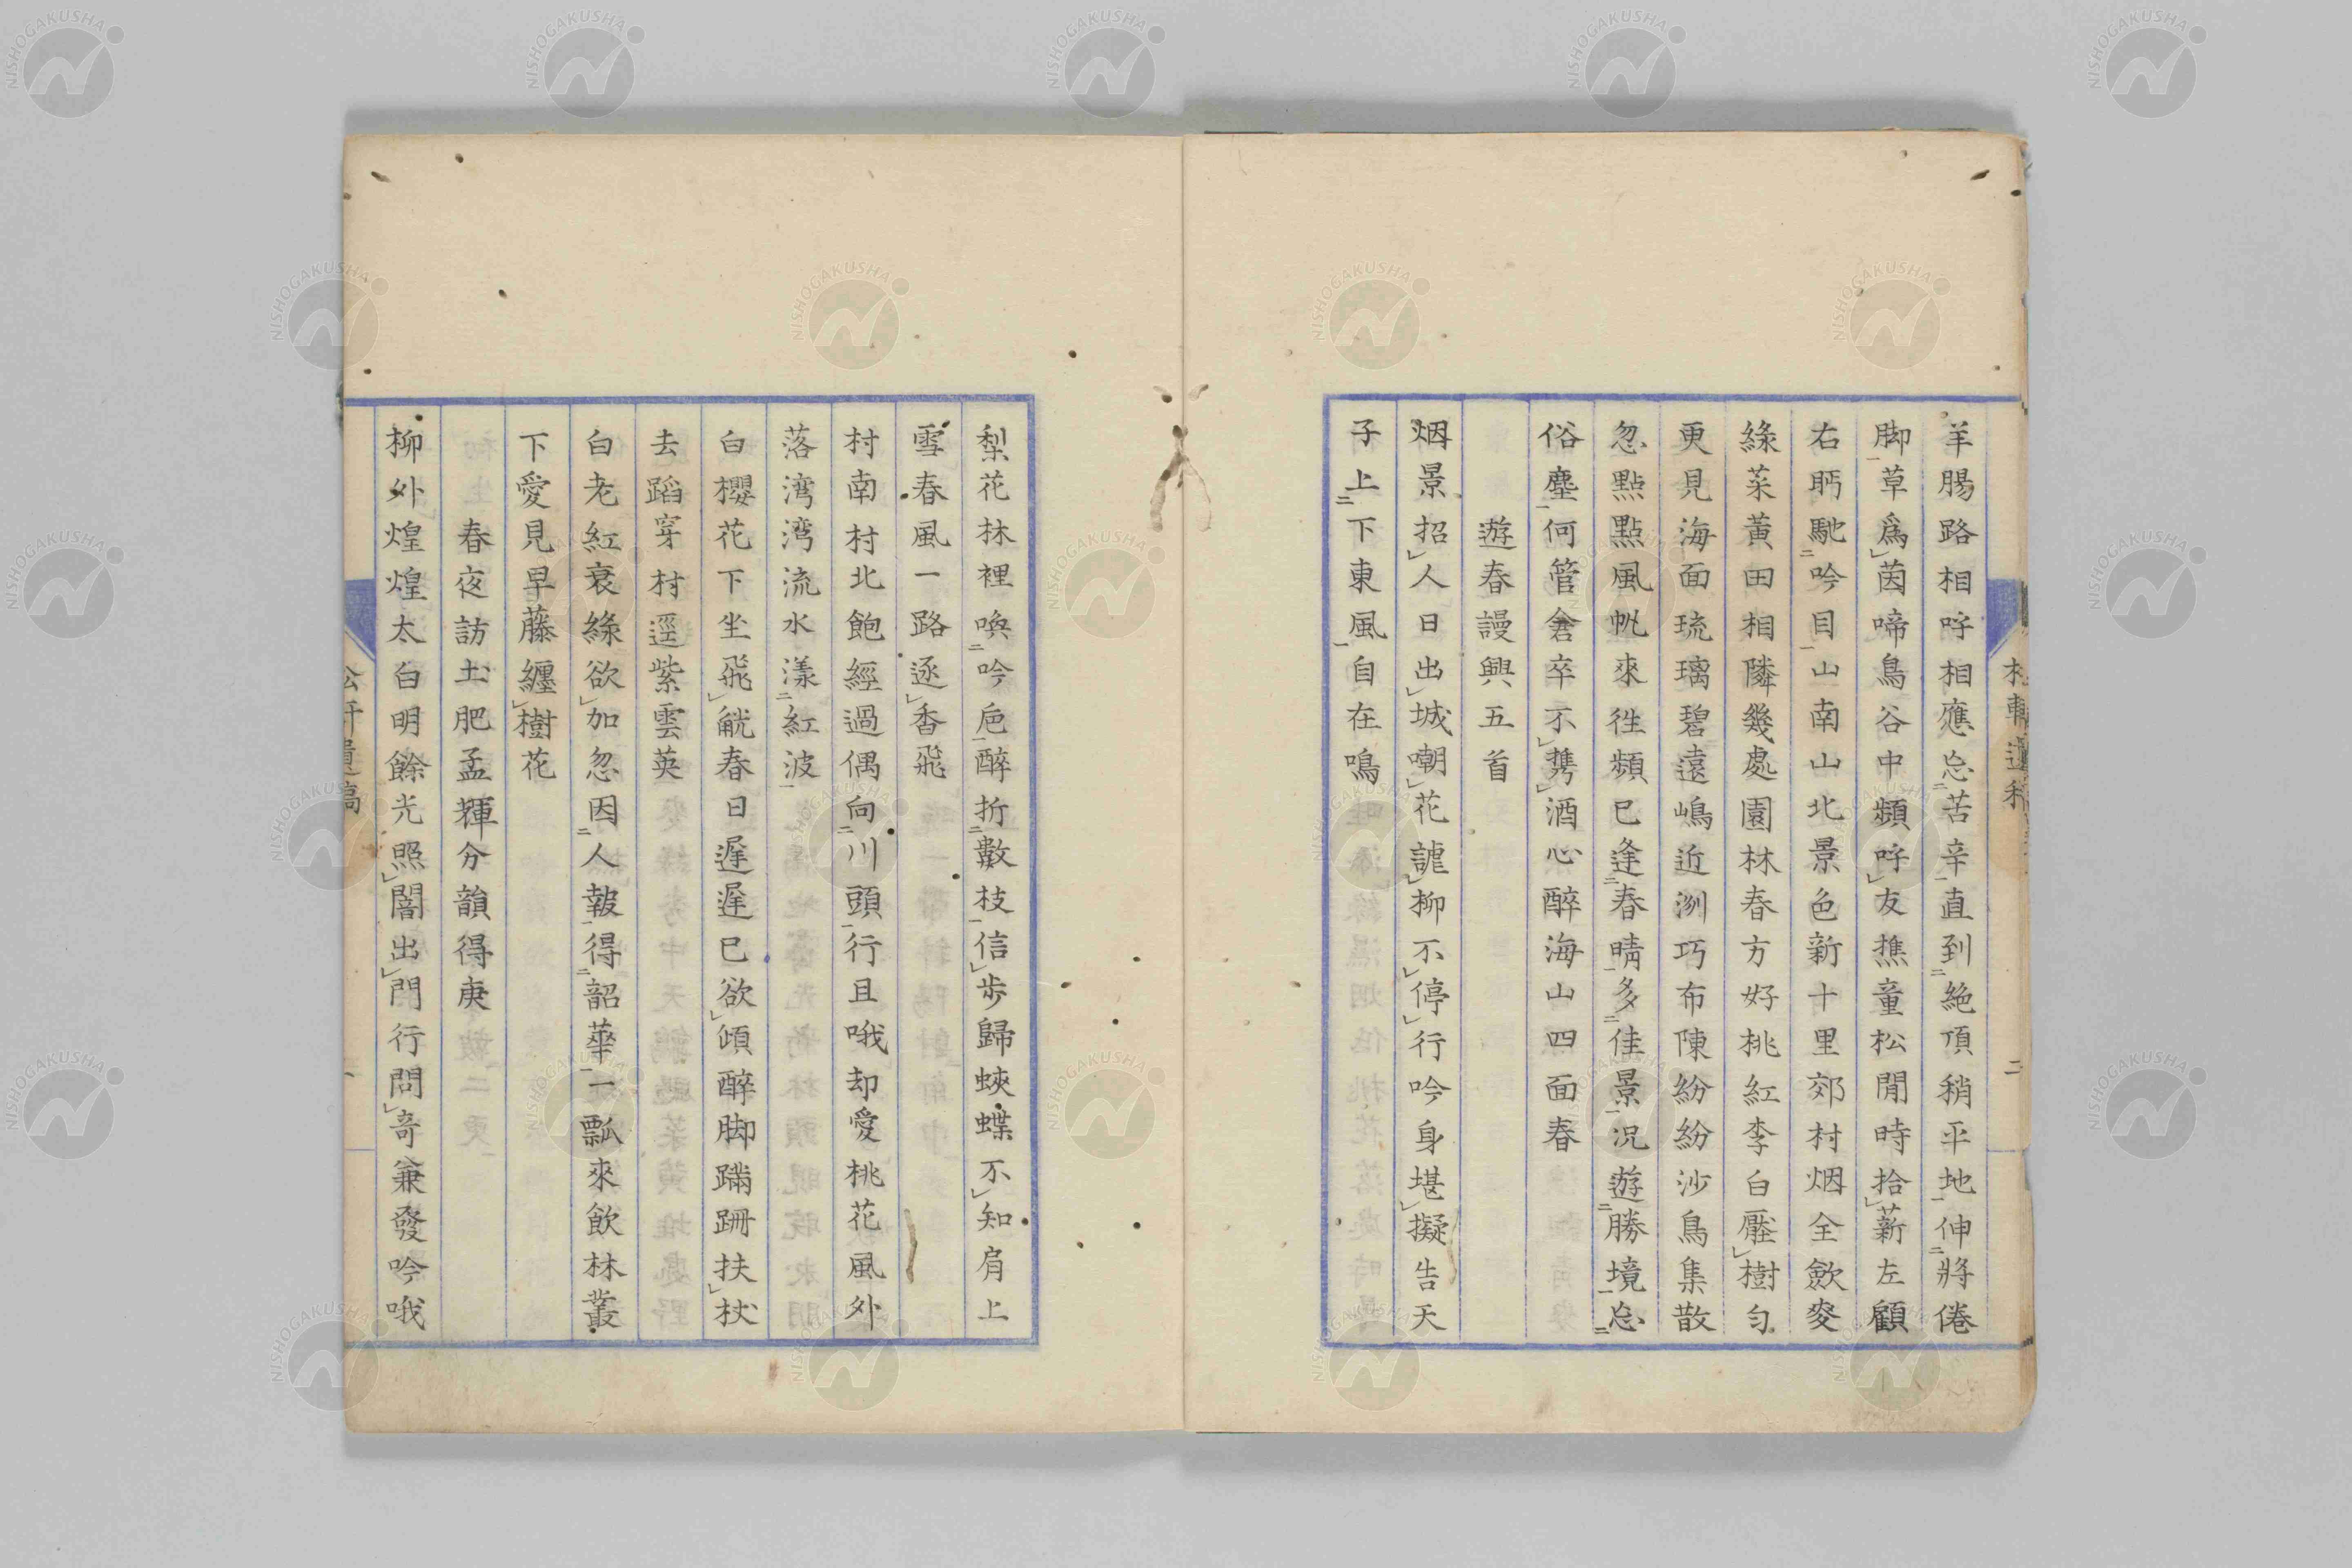 羊腸路相呼相應忘苦辛直到絶頂稍平地伸將倦
脚草爲茵啼鳥谷中頻呼友樵童松閒時拾薪左顧
右眄馳吟目山南山北景色新十里郊村烟全歛麥
綠菜黃田相隣幾處園林春方好桃紅李白壓樹匂
更見海面琉璃碧遠嶋近洲巧布陳紛紛沙鳥集散
忽點點風帆來徃頻已逢春晴多佳景况遊勝境忘
俗塵何管倉卒不携酒心醉海山四面春
遊春謾興五首
烟景招人日出城嘲花謔柳不停行吟身堪擬告天
子上下東風自在鳴
梨花林裡喚吟巵醉折數枝信歩歸蛺蝶不知肩上
雪春風一路逐香飛
村南村北飽經過偶向川頭行且哦却愛桃花風外
落湾湾流水漾紅波
白櫻花下坐飛觥春日遲遲已欲傾醉脚蹣跚扶杖
去蹈穿村逕紫雲英
白老紅衰綠欲加忽因人報得韶華一瓢來飮林叢
下愛見早藤纏樹花
春夜訪土肥孟輝分韻得庚
柳外煌煌太白明餘光照闇出門行問奇兼發吟哦
二
NISHOGAKUSHA